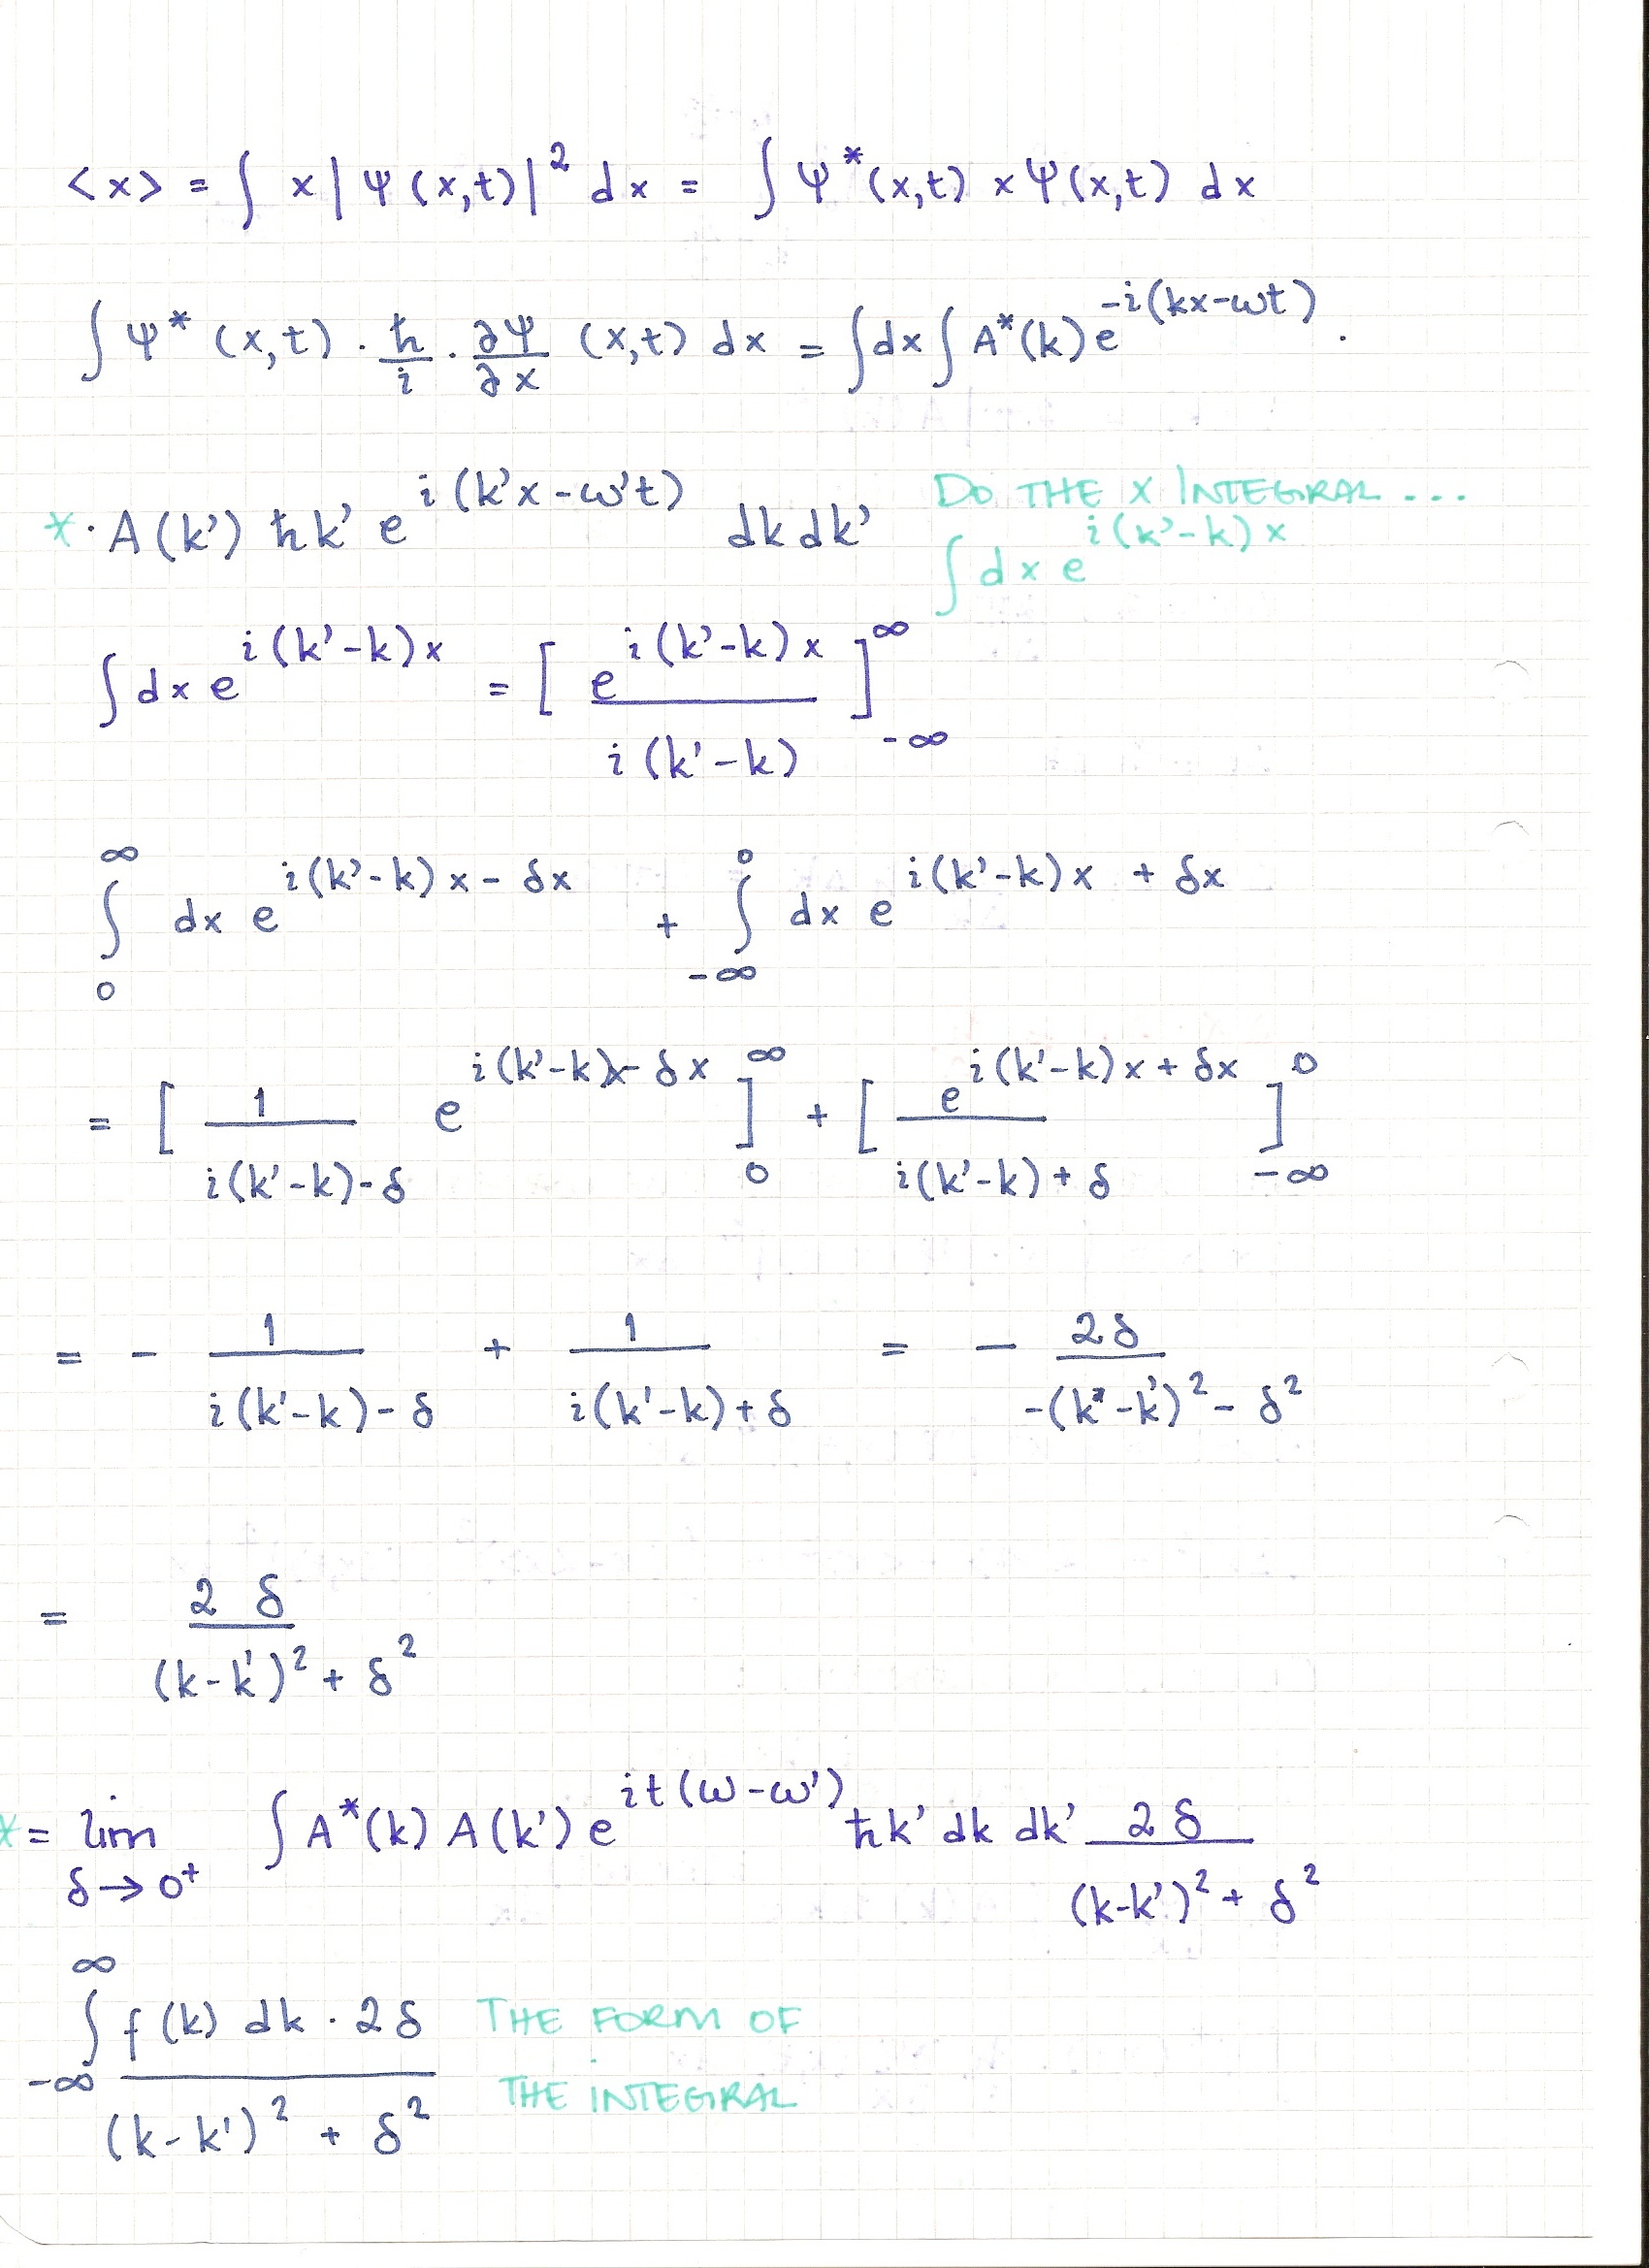 <x> = ∫ x |Ψ(x,t)|² dx = ∫ Ψ*(x,t) x Ψ(x,t) dx
∫ Ψ*(x,t) · ħ/i · ∂Ψ/∂x (x,t) dx = ∫dx ∫ A*(k) e^{-i(kx-ωt)} ·
* · A(k') ħk' e^{i(k'x-ω't)} dk dk' DO THE X INTEGRAL ...
∫ dx e^{i(k'-k)x}
∫ dx e^{i(k'-k)x} = [ e^{i(k'-k)x} / i(k'-k) ]_{-∞}^{∞}
∫_0^∞ dx e^{i(k'-k)x - δx} + ∫_{-∞}^0 dx e^{i(k'-k)x + δx}
= [ 1/(i(k'-k)-δ) e^{i(k'-k)x - δx} ]_0^∞ + [ e^{i(k'-k)x + δx} / (i(k'-k)+δ) ]_{-∞}^0
= - 1/(i(k'-k)-δ) + 1/(i(k'-k)+δ) = - 2δ/(-(k-k')² - δ²)
= 2δ/((k-k')² + δ²)
* = lim_{δ→0⁺} ∫ A*(k) A(k') e^{it(ω-ω')} ħk' dk dk' 2δ/((k-k')² + δ²)
∫_{-∞}^{∞} f(k) dk · 2δ / ((k-k')² + δ²) THE FORM OF
THE INTEGRAL